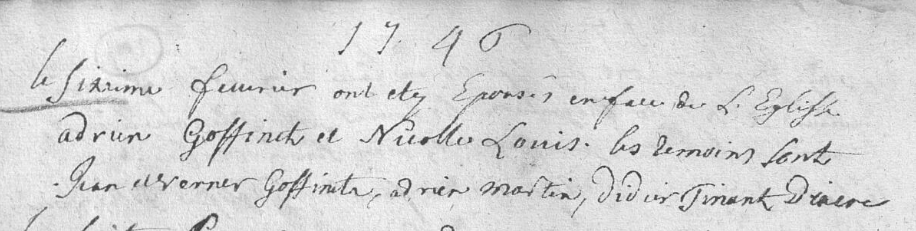 1746
le sixieme feuvrier ont etez Epousés en face de L Eglisse
adrien Goffinet et Nicolle Louis. les temoins sont
Jean et verner Goffinete, adrien martin, didier Tinant